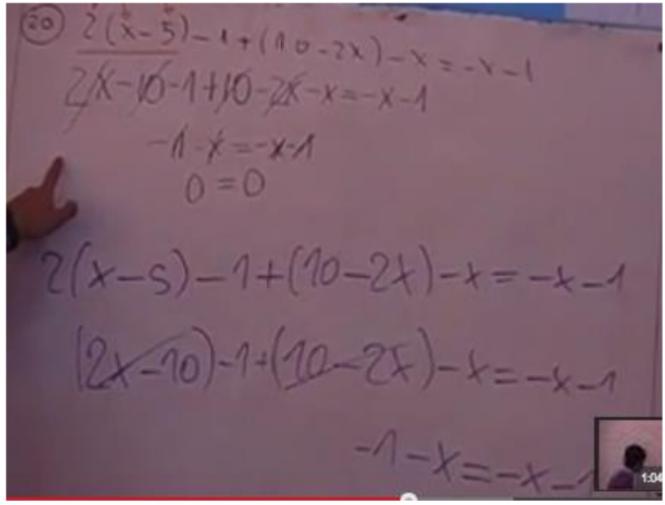 20 2(x-5)-1+(10-2x)-x=-x-1
2x-10-1+10-2x-x=-x-1
-1-x=-x-1
0=0
2(x-5)-1+(10-2x)-x=-x-1
(2x-10)-1+(10-2x)-x=-x-1
-1-x=-x-1
1:04